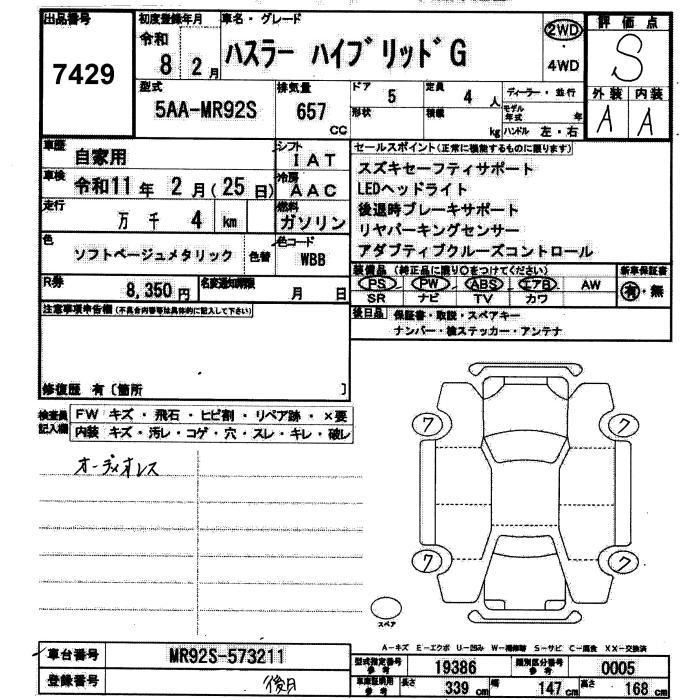 出品番号
7429
初度登録年月
令和
8 2月
車名・グレード
ハスラー ハイブリッドG
2WD
・
4WD
評価点
S
外装 内装
A A
型式
5AA-MR92S
排気量
657
CC
ドア
5
形状
定員
4 人
積載
kg
ディーラー・並行
モデル年式 年
ハンドル 左・右
車歴
自家用
シフト
IAT
車検
令和11年 2月(25日)
冷房
AAC
走行
万 千 4 km
燃料
ガソリン
色
ソフトベージュメタリック
色替
色コード
WBB
R券
8,350円
名変通知期限
月 日
セールスポイント(正常に機能するものに限ります)
スズキセーフティサポート
LEDヘッドライト
後退時ブレーキサポート
リヤパーキングセンサー
アダプティブクルーズコントロール
装備品(純正品に限り○をつけてください)
PS PW ABS エアB AW
SR ナビ TV カワ
新車保証書
有・無
後日品
保証書・取説・スペアキー
ナンバー・検ステッカー・アンテナ
注意事項申告欄(不具合内容等は具体的に記入して下さい)
修復歴 有〔箇所 〕
検査員記入欄
FW キズ・飛石・ヒビ割・リペア跡・×要
内装 キズ・汚レ・コゲ・穴・スレ・キレ・破レ
オーディオレス
7 7
7 7
スペア
A-キズ E-エクボ U-凹み W-補修跡 S-サビ C-腐食 XX-交換済
車台番号
MR92S-573211
登録番号
後日
型式指定番号
参考
19386
類別区分番号
参考
0005
車庫証明用
参考
長さ 339 cm 幅 147 cm 高さ 168 cm